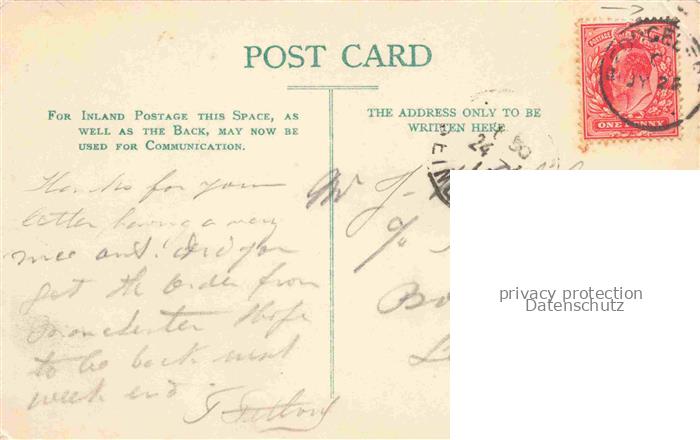 POST CARD
FOR INLAND POSTAGE THIS SPACE, AS
WELL AS THE BACK, MAY NOW BE
USED FOR COMMUNICATION.
THE ADDRESS ONLY TO BE
WRITTEN HERE.
POSTAGE
ONE PENNY
JY 25
24
Thanks for your
letter having a very
nice out. Did you
get the order from
Manchester Hope
to be back next
week end.
Mr J.
c/o
privacy protection
Datenschutz